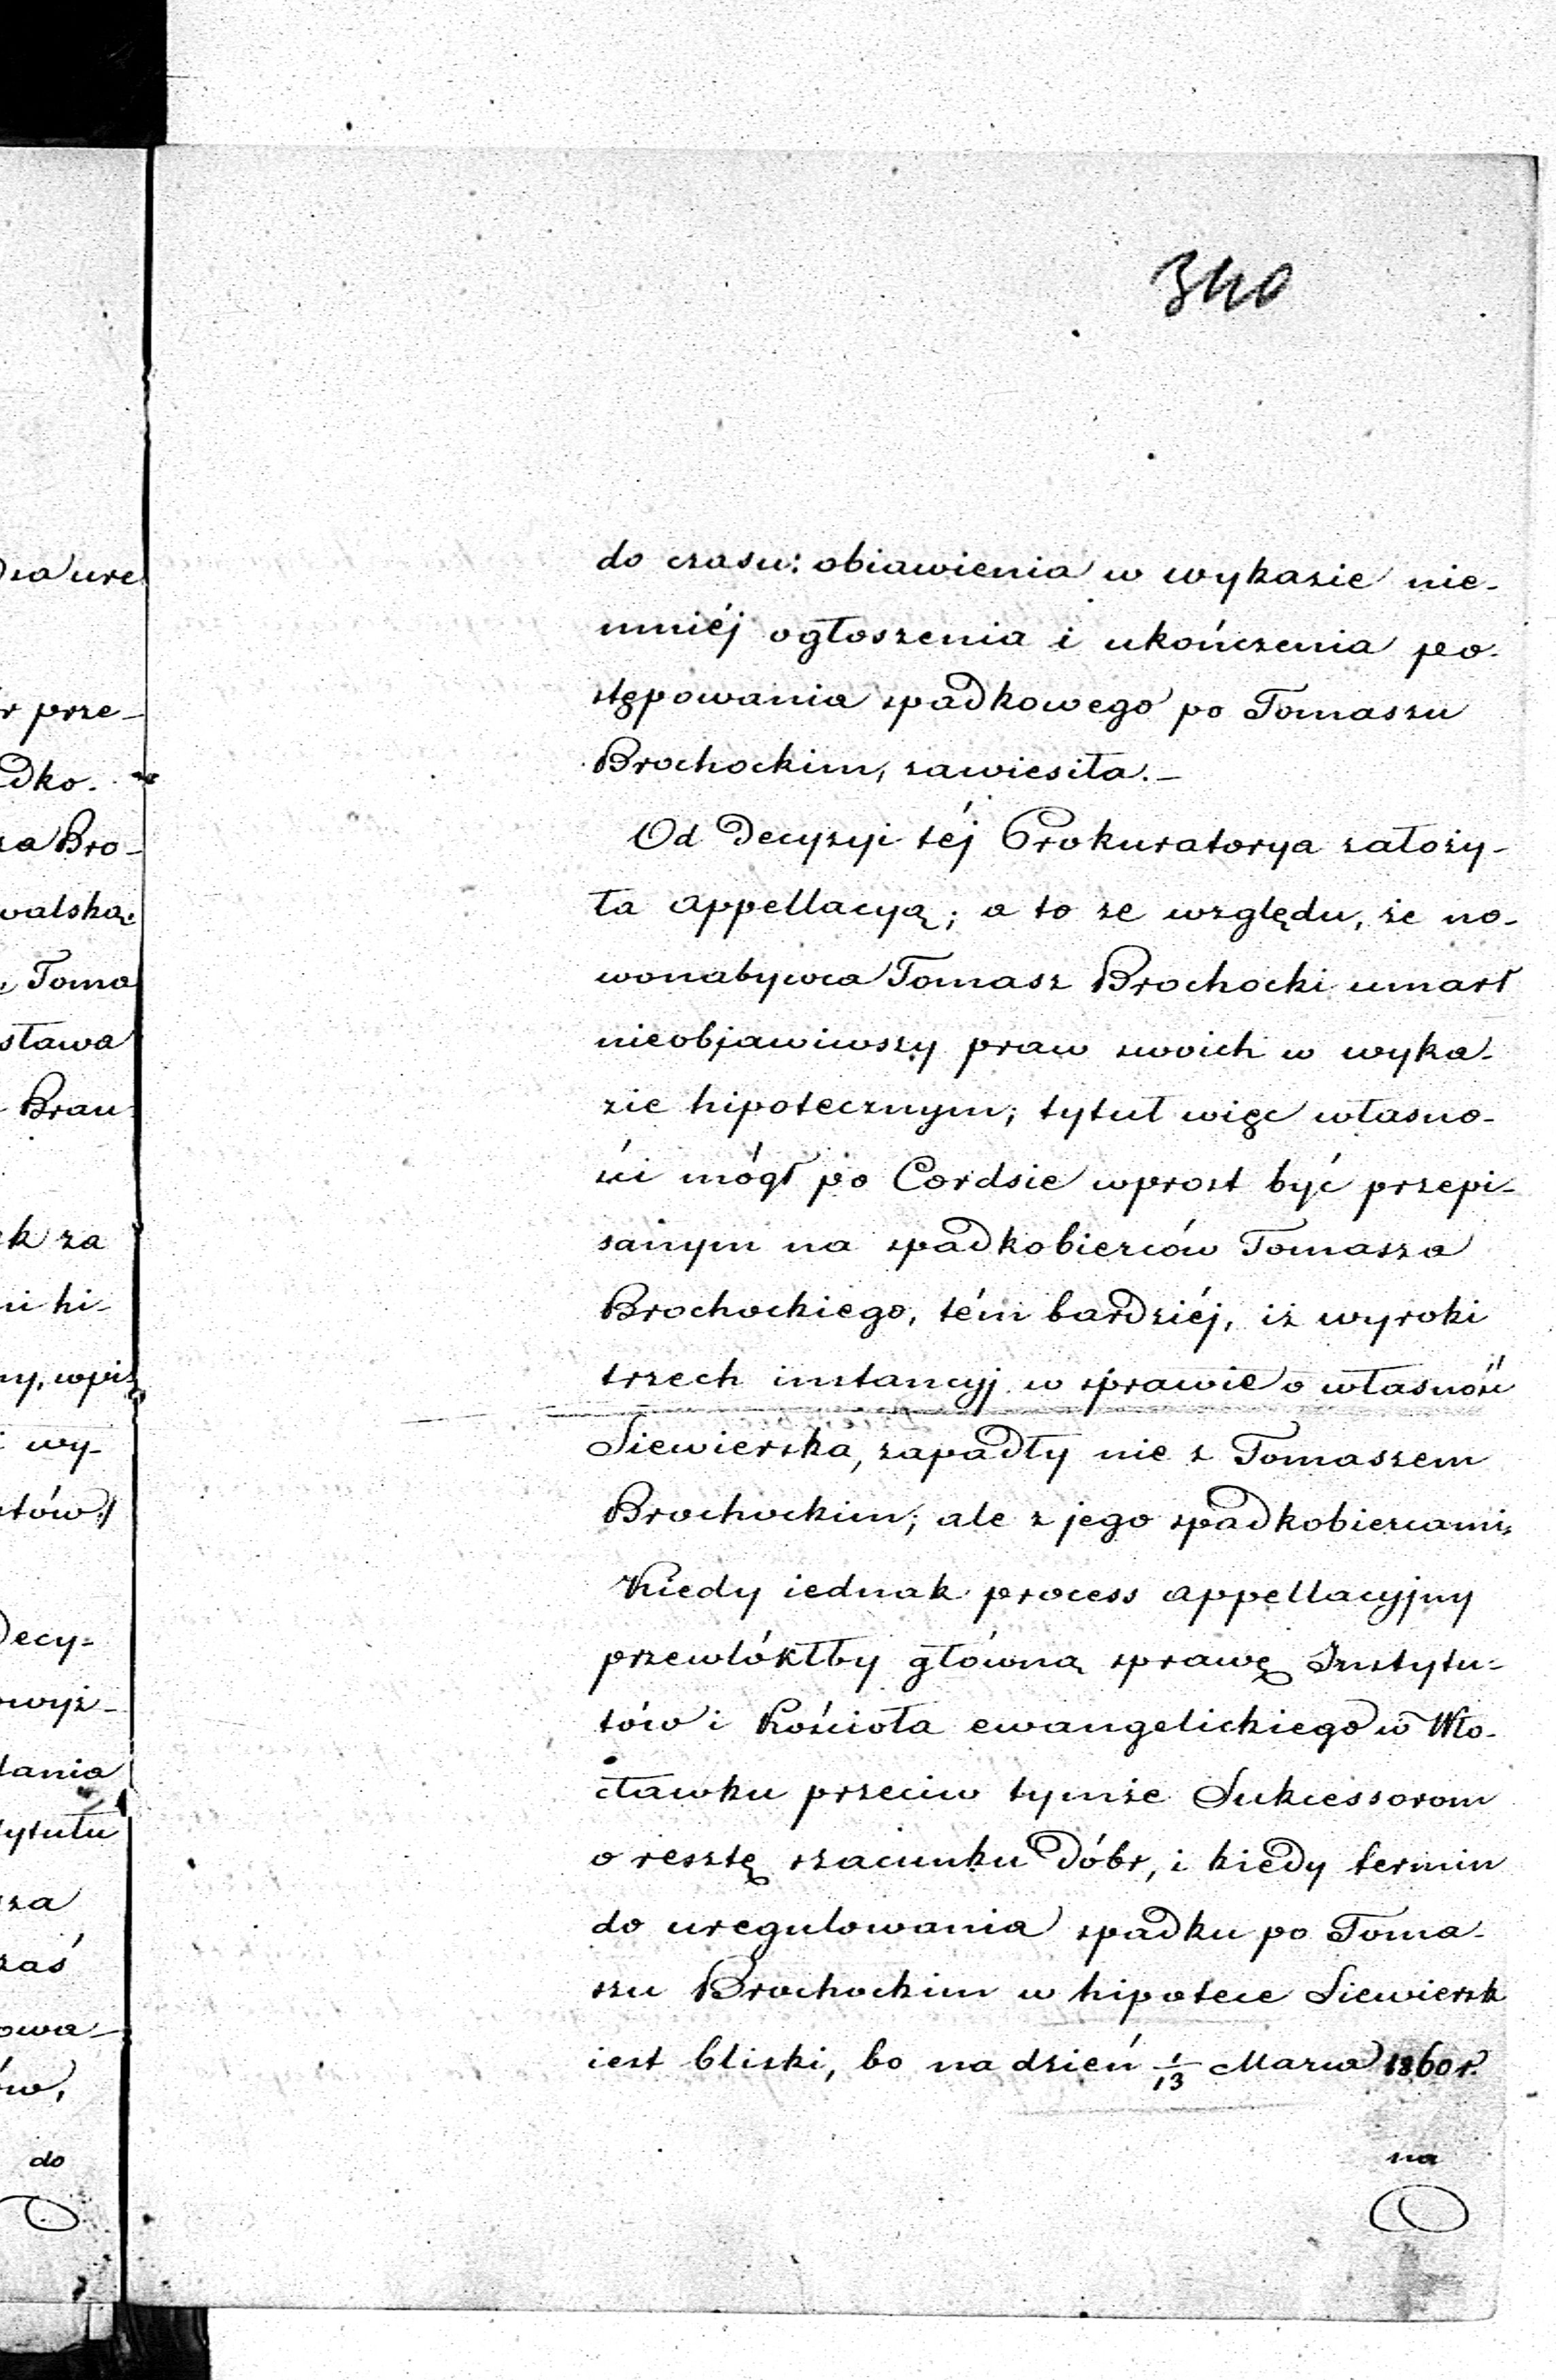 340
do czasu: obiawienia w wykazie nie-
mniéj ogłoszenia i ukończenia po-
stępowania spadkowego po Tomaszu
Brochockim, zawiesiła.-
Od Decyzyi téj Prokuratorya założy-
ła appellacyą; a to ze względu, że no-
wonabywca Tomasz Brochocki umarł
nieobjawiwszy praw swoich w wyka-
zie hipotecznym; tytuł więc własno-
ści mógł po Cordsie wprost być przepi-
sanym na spadkobierców Tomasza
Brochockiego, tém bardziéj, iż wyroki
trzech instancyj w sprawie o własność
Siewierska, zapadły nie z Tomaszem
Brochockim; ale z jego spadkobiercami,
Kiedy iednak process appellacyjny
przewlókłby główną sprawę Instytu-
tów i Kościoła ewangelickiego w Wło-
cławku przeciw tymże Sukcessorom
o resztę szacunku dóbr, i kiedy termin
do uregulowania spadku po Toma-
szu Brochockim w hipotece Siewiersk
iest bliski, bo na dzień 1/13 Marca 1860 r.
na
r prze-
dko.
za Bro-
walską.
Toma
sława
Brau
k za
ni hi-
ny, wpis
wy-
tów./
Decy-
owyż-
dania
tytułu
sza
zaś
owa-
ów,
do